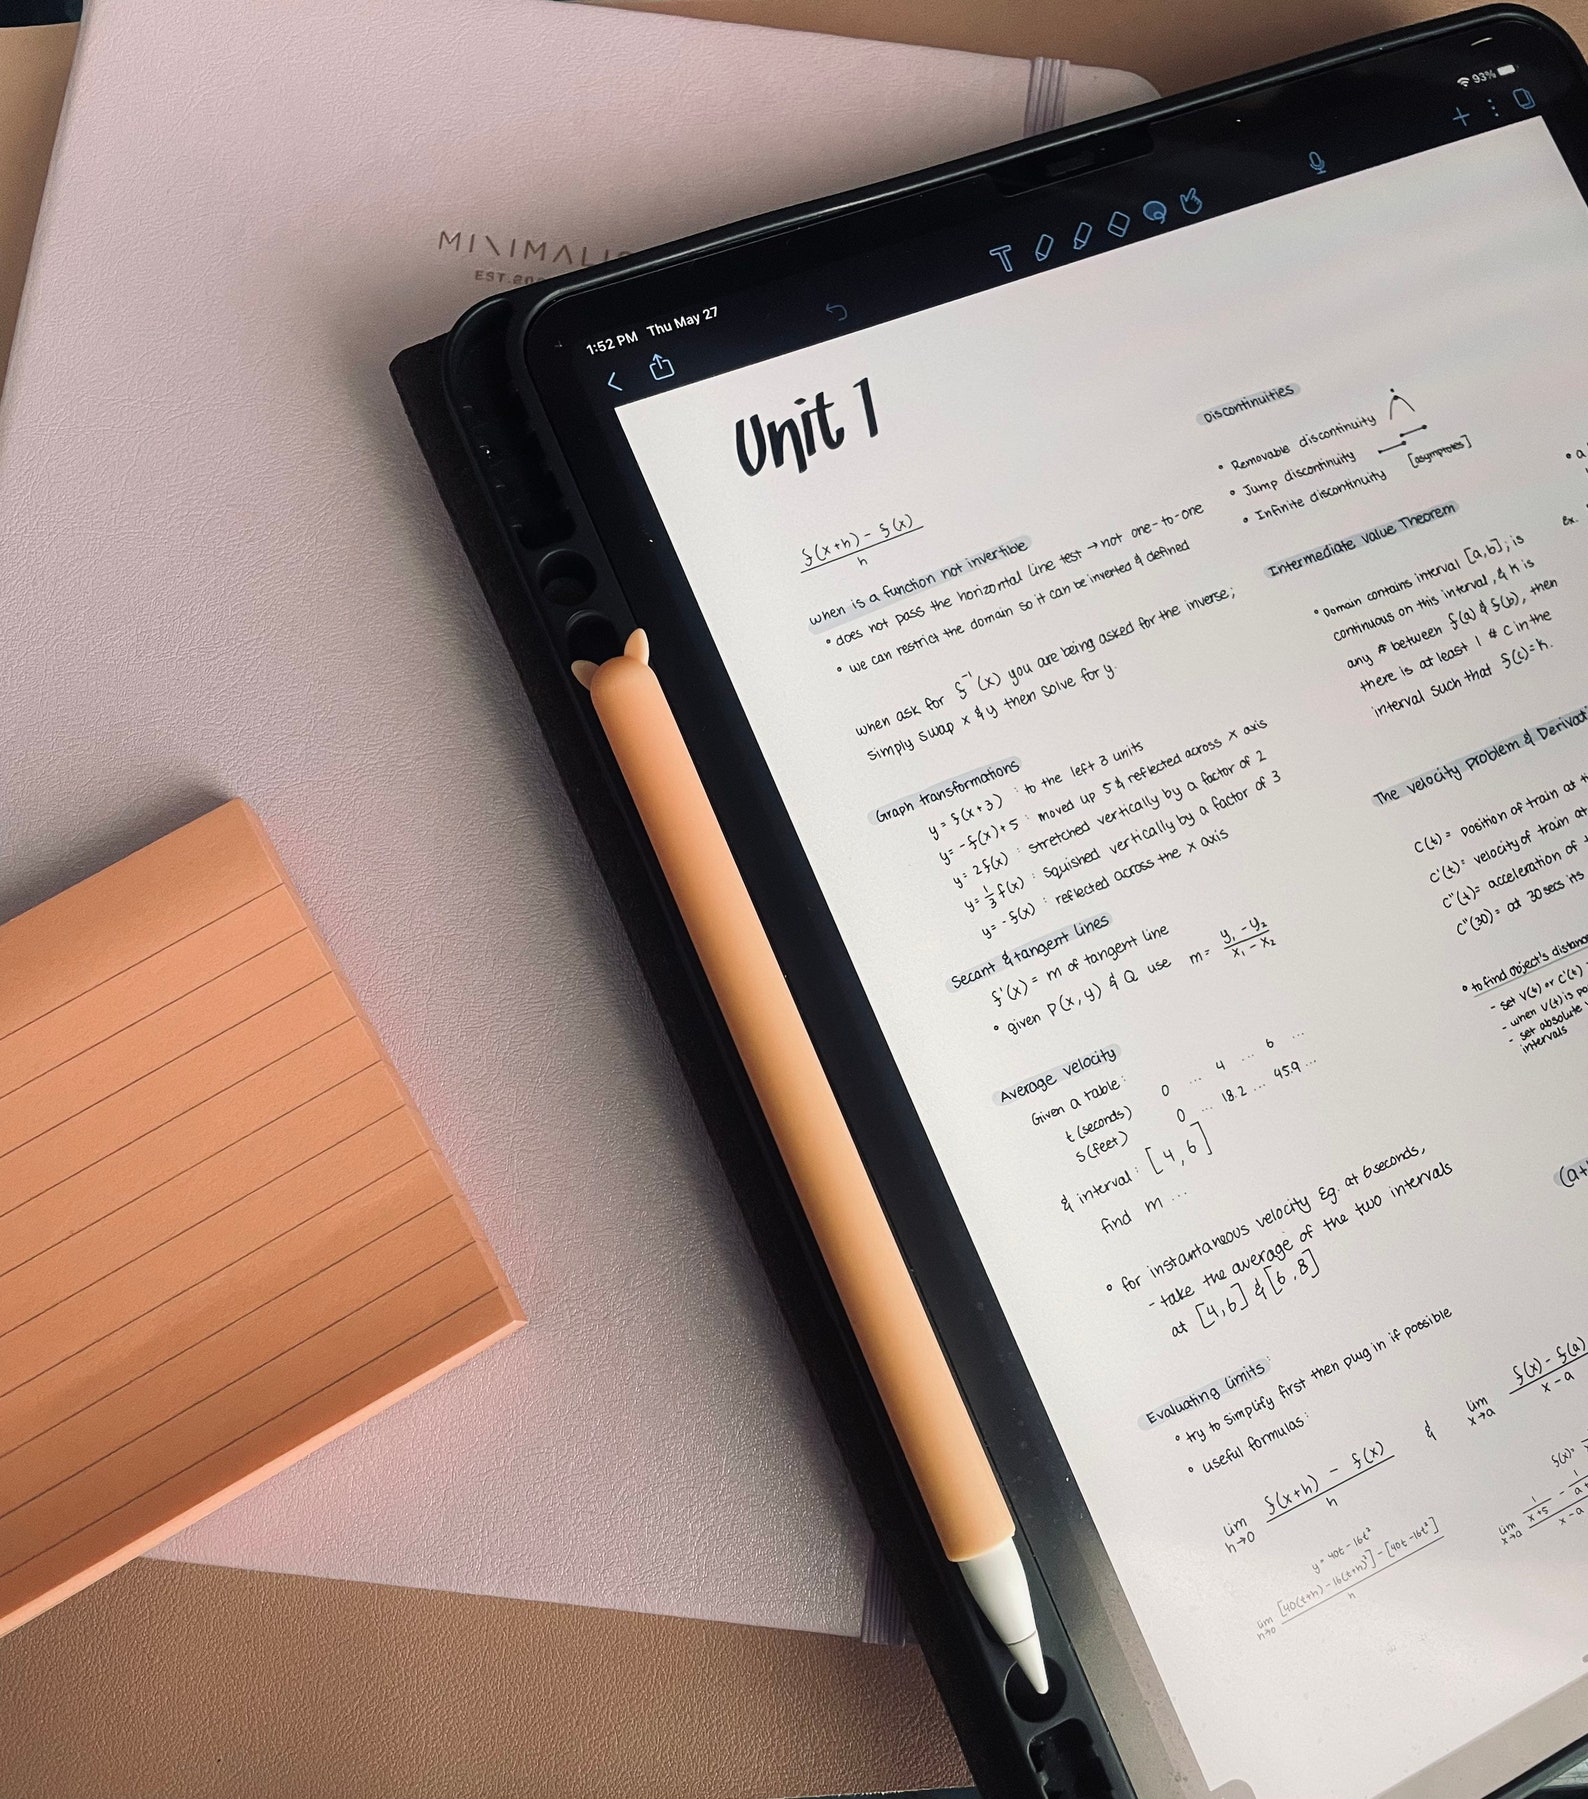 MINIMALIS
EST.
93%
1:52 PM Thu May 27
Unit 1
f(x+h) - f(x)
h
when is a function not invertible
• does not pass the horizontal line test → not one-to-one
• we can restrict the domain so it can be inverted & defined
when ask for f⁻¹(x) you are being asked for the inverse;
simply swap x & y then solve for y.
Graph transformations
y = f(x+3) : to the left 3 units
y = -f(x)+5 : moved up 5 & reflected across x axis
y = 2f(x) : stretched vertically by a factor of 2
y = 1/3 f(x) : squished vertically by a factor of 3
y = -f(x) : reflected across the x axis
Secant & tangent lines
f'(x) = m of tangent line
• given P(x, y) & Q use m = y₁ - y₂ / x₁ - x₂
Average velocity
Given a table:
t (seconds) 0 ... 4 ... 6 ...
s (feet) 0 ... 18.2 ... 45.9 ...
& interval: [4, 6]
find m ...
• for instantaneous velocity Eg. at 6 seconds,
- take the average of the two intervals
at [4,6] & [6,8]
Evaluating limits:
• try to simplify first then plug in if possible
• useful formulas:
lim h→0 f(x+h) - f(x) / h & lim x→a f(x) - f(a) / x - a
y = 40t - 16t²
lim h→0 [40(t+h) - 16(t+h)²] - [40t - 16t²] / h
Discontinuities
• Removable discontinuity
• Jump discontinuity
• Infinite discontinuity [asymptotes]
Intermediate Value Theorem
• Domain contains interval [a,b], is
continuous on this interval, & K is
any # between f(a) & f(b), then
there is at least 1 # c in the
interval such that f(c)=K.
The velocity problem & Derivati
C(t) = position of train at
C'(t) = velocity of train at
C''(t) = acceleration of
C''(30) = at 30 secs its
• to find object's distanc
- set V(t) or C'(t)
- when V(t) is po
- set absolute
intervals
(a+
f(x)=
lim x→a 1/x+5 - 1/a+ / x-a
• a
Ex.